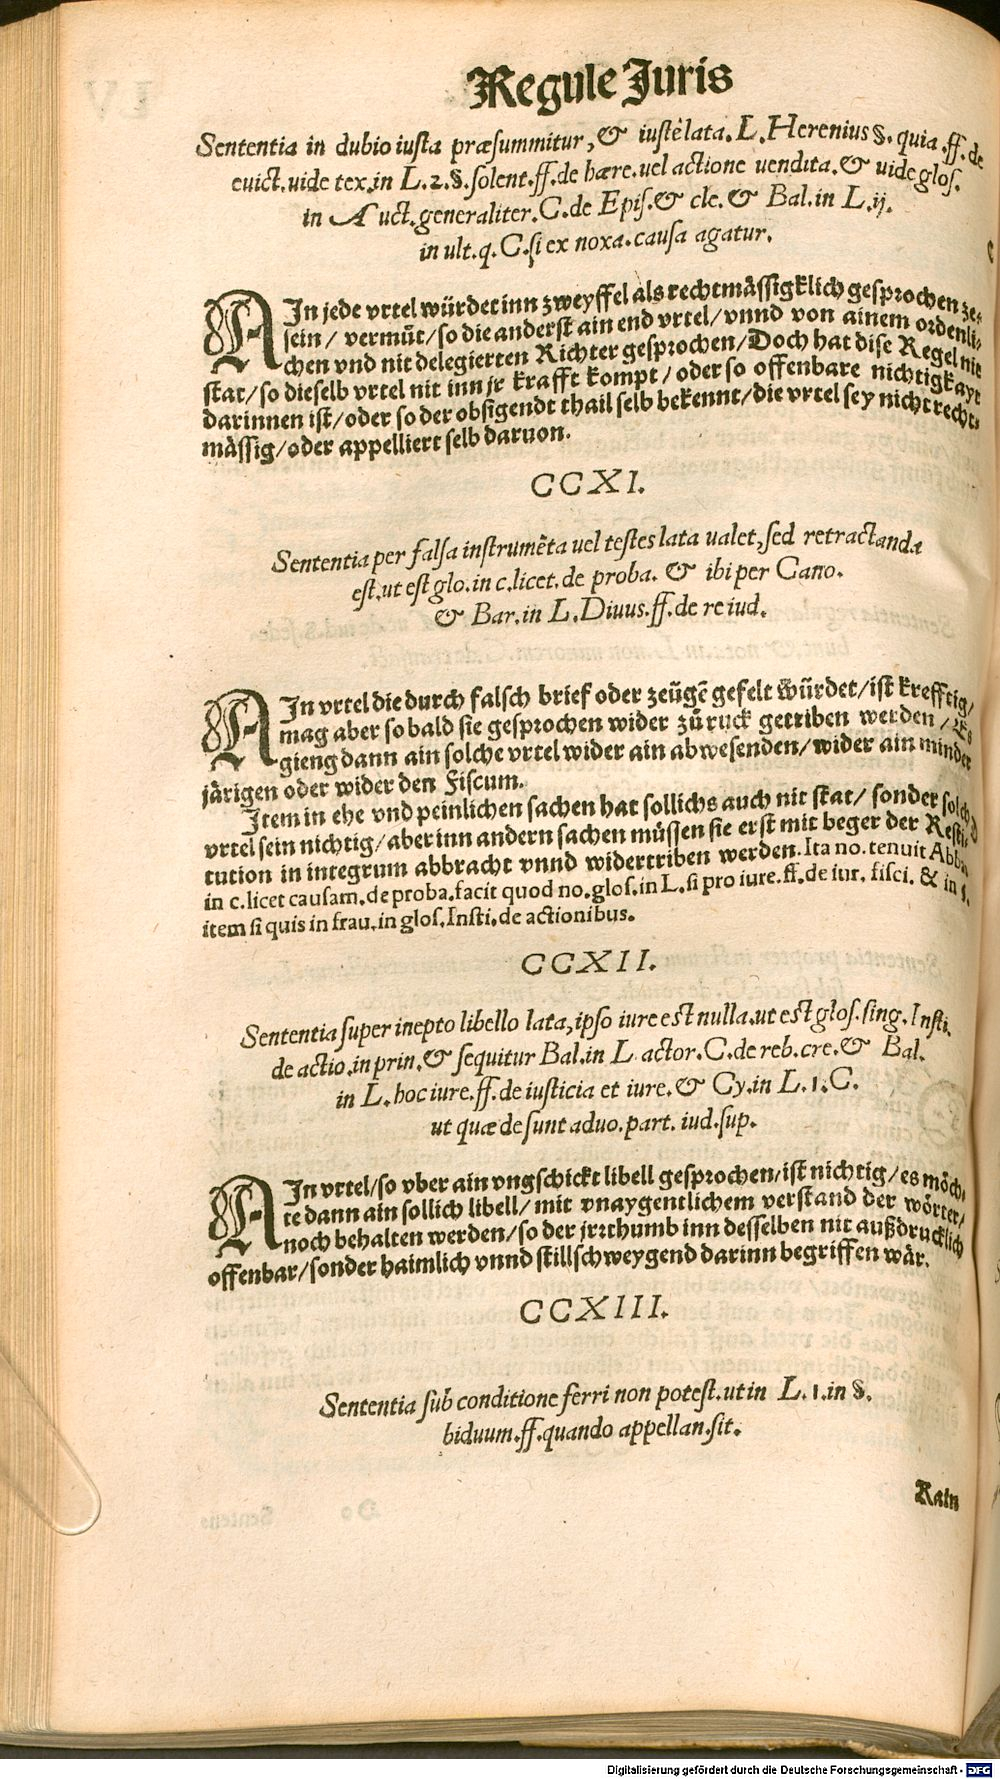 Regule Juris
Sententia in dubio iusta præsummitur, & iustè lata. L. Herenius §. quia. ff. de
euict. uide tex. in L. 2. §. solent. ff. de hære. uel actione uendita. & uide glos.
in Auct. generaliter. C. de Epis. & cle. & Bal. in L. ij.
in ult. q. C. si ex noxa. causa agatur.
AIn jede vrtel würdet inn zweyffel als rechtmässigklich gesprochen ze
sein / vermüt / so die anderst ain end vrtel / vnnd von ainem ordenli-
chen vnd nit delegierten Richter gesprochen / Doch hat dise Regel nit
stat / so dieselb vrtel nit inn jr krafft kompt / oder so offenbare nichtigkayt
darinnen ist / oder so der obsigendt thail selb bekennt / die vrtel sey nicht recht-
mässig / oder appelliert selb daruon.
CCXI.
Sententia per falsa instrumẽta uel testes lata ualet, sed retractanda
est. ut est glo. in c. licet. de proba. & ibi per Cano.
& Bar. in L. Diuus. ff. de re iud.
AIn vrtel die durch falsch brief oder zeügẽ gefelt würdet / ist krefftig /
mag aber so bald sie gesprochen wider zů ruck getriben werden / Es
gieng dann ain solche vrtel wider ain abwesenden / wider ain minder
järigen oder wider den Fiscum.
Item in ehe vnd peinlichen sachen hat sollichs auch nit stat / sonder solch
vrtel sein nichtig / aber inn andern sachen müssen sie erst mit beger der Resti-
tution in integrum abbracht vnnd widertriben werden. Ita no. tenuit Abba.
in c. licet causam. de proba. facit quod no. glos. in L. si pro iure. ff. de iur. fisci. & in §.
item si quis in frau. in glos. Insti. de actionibus.
CCXII.
Sententia super inepto libello lata, ipso iure est nulla. ut est glos. sing. Insti.
de actio. in prin. & sequitur Bal. in L. actor. C. de reb. cre. & Bal.
in L. hoc iure. ff. de iusticia et iure. & Cy. in L. 1. C.
ut quæ desunt aduo. part. iud. sup.
AIn vrtel / so vber ain vngschickt libell gesprochen / ist nichtig / es möch-
te dann ain sollich libell / mit vnaygentlichem verstand der wörter /
noch behalten werden / so der jrrthumb inn desselben nit außdrucklich
offenbar / sonder haimlich vnnd stillschweygend darinn begriffen wär.
CCXIII.
Sententia sub conditione ferri non potest. ut in L. 1. in §.
biduum. ff. quando appellan. sit.
Kain
Digitalisierung gefördert durch die Deutsche Forschungsgemeinschaft - DFG